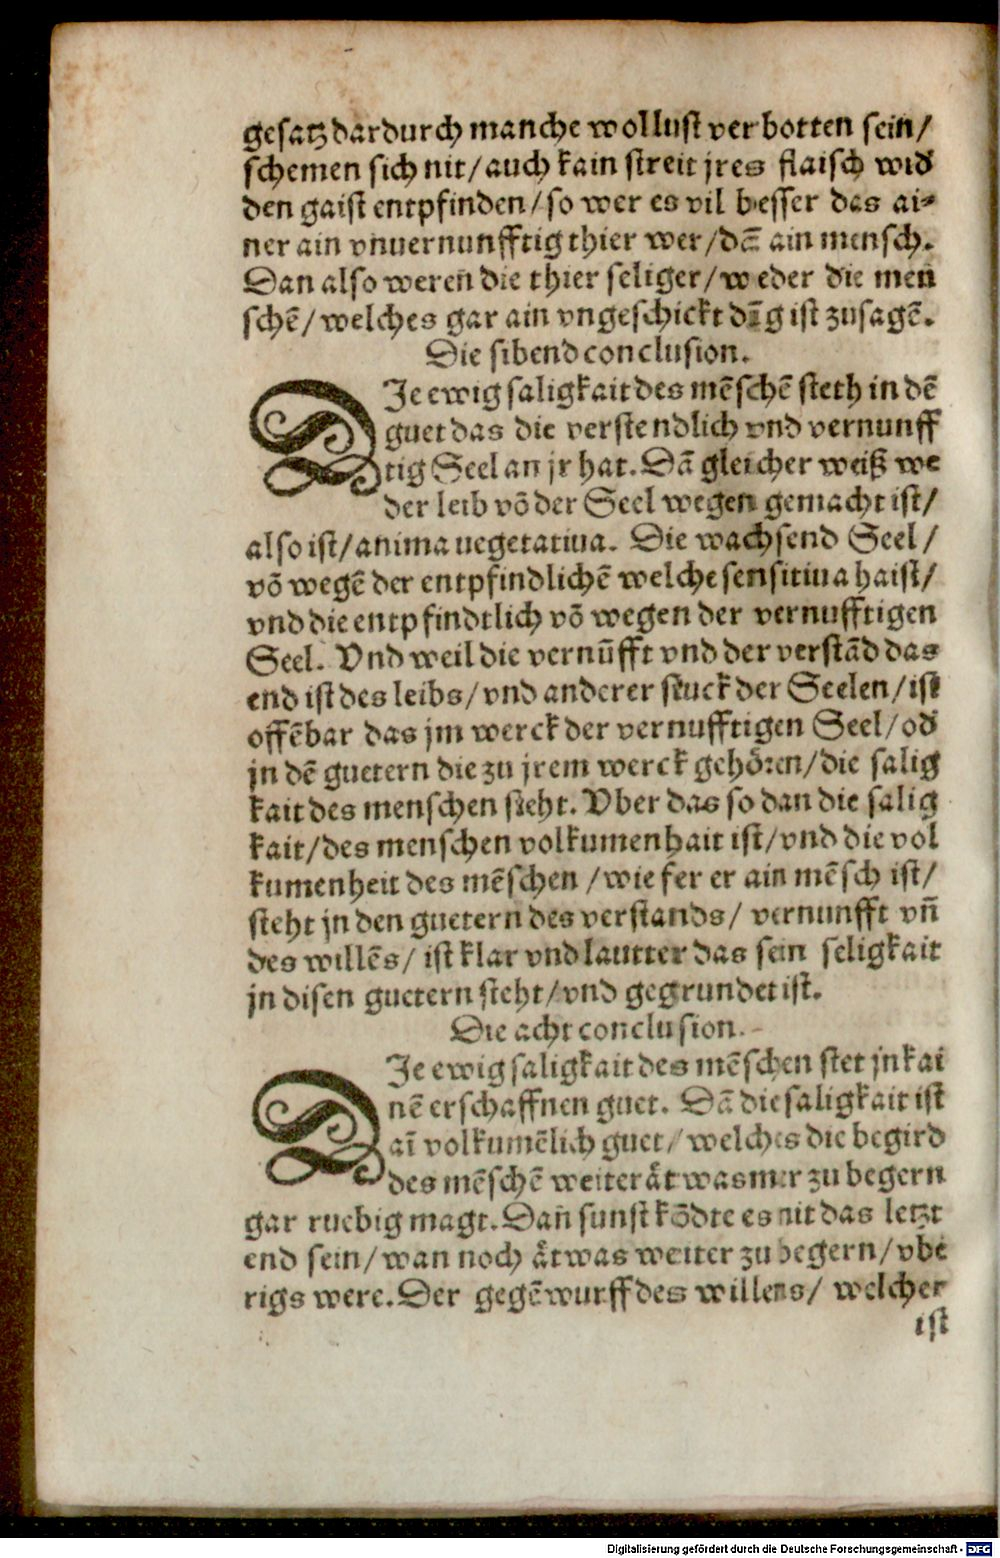 gesatz dardurch manche wollust verbotten sein/
schemen sich nit/ auch kain streit jres flaisch wid̕
den gaist entpfinden/ so wer es vil besser das ai⸗
ner ain vnuernunfftig thier wer/ dã ain mensch.
Dan also weren die thier seliger/ weder die men
schẽ/ welches gar ain vngeschickt dĩg ist zusagẽ.
Die sibend conclusion.
DIe ewig saligkait des mẽschẽ steth in dẽ
guet das die verstendlich vnd vernunff
tig Seel an jr hat. Dã gleicher weiß we
der leib võ der Seel wegen gemacht ist/
also ist/ anima uegetatiua. Die wachsend Seel/
võ wegẽ der entpfindlichẽ welche sensitiua haist/
vnd die entpfindtlich võ wegen der vernufftigen
Seel. Vnd weil die vernũfft vnd der verstãd das
end ist des leibs/ vnd anderer stuck der Seelen/ ist
offẽbar das jm werck der vernufftigen Seel/ od̕
jn dẽ guetern die zu jrem werck gehören/ die salig
kait des menschen steht. Vber das so dan die salig
kait/ des menschen volkumenhait ist/ vnd die vol
kumenheit des mẽschen/ wie fer er ain mẽsch ist/
steht jn den guetern des verstands/ vernunfft vñ
des willẽs/ ist klar vnd lautter das sein seligkait
jn disen guetern steht/ vnd gegrundet ist.
Die acht conclusion.
DIe ewig saligkait des mẽschen stet jn kai
nẽ erschaffnen guet. Dã die saligkait ist
aĩ volkumẽlich guet/ welches die begird
des mẽschẽ weiter åt was mer zu begern
gar ruebig magt. Dañ sunst kõdte es nit das letzt
end sein/ wan noch åtwas weiter zu begern/ vbe
rigs were. Der gegẽwurff des willens/ welcher
ist
Digitalisierung gefördert durch die Deutsche Forschungsgemeinschaft - DFG